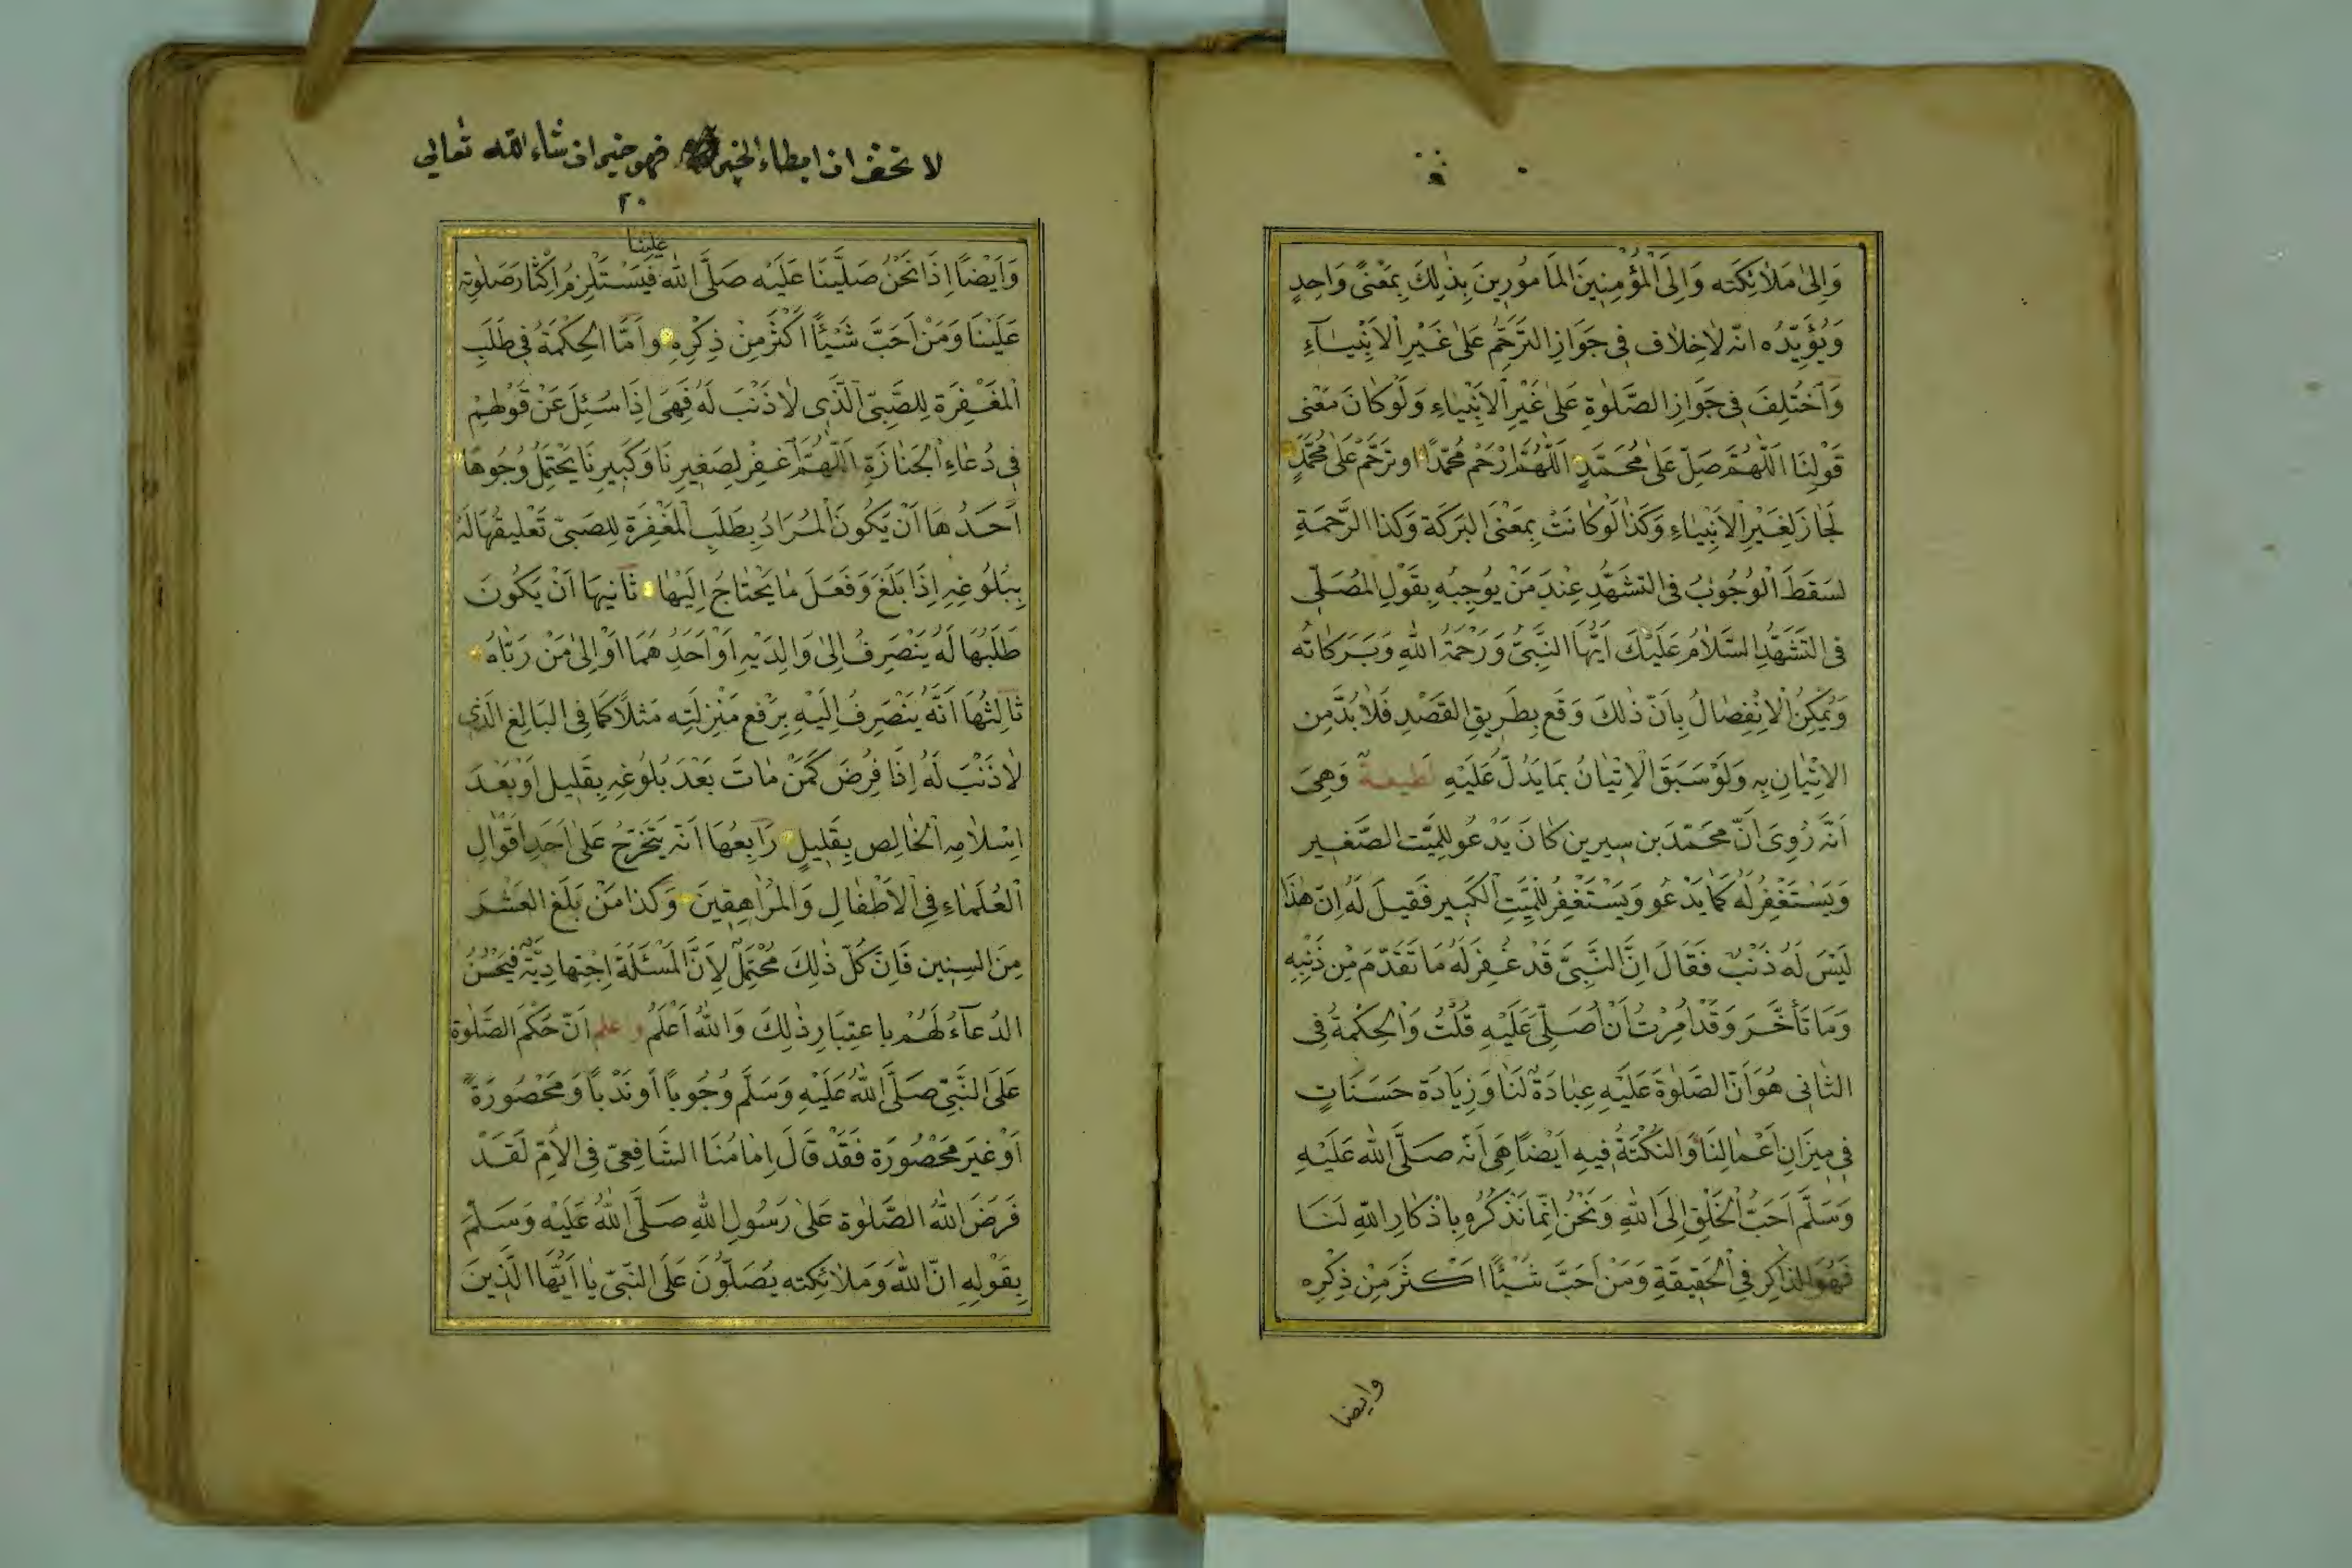 وَاِلىٰ مَلٰائِكَتِه وَاِلَى الْمُؤْمِنِينَ المَأمُورِينَ بِذٰلِكَ بِمَعْنًى وَاحِدٍ
وَيُؤَيِّدُه انّه لٰاخِلٰاف فِى جَوَازِ التَرَحُّمِ عَلىٰ غَيْرِ الاَنْبِيَآءِ
وَاَخْتُلِفَ فِى جَوَازِ الصَّلٰوةِ عَلىٰ غَيْرِ الاَنْبِيٰاءِ وَلَوكٰانَ مَعْنى
قَولِنَا اللّٰهُمَّ صَلِّ عَلىٰ مُحَمَّدٍ اَللّٰهُمَّ ارْحَمْ مُحَمَّدًا اوتَرَحَّمْ عَلىٰ مُحَمَّدٍ
لَجٰازَ لِغَيْرِ الاَنْبِيٰاءِ وَكَذٰا لَوكٰانَتْ بِمَعْنَى البَرَكَة وَكَذا الرَّحْمَةِ
لسَقَطَ الْوُجُوبُ فى التشَهُّدِ عِنْدَ مَنْ يوُجِبُهِ بِقَوْلِ المُصَلِّى
فى التَشَهُّدِ السَّلٰامُ عَلَيْكَ اَيُّهَا النَّبِىُّ وَرَحْمَةُ اللهِ وَبَرَكٰاتُه
وَيُمْكِنُ الْاِنْفِصٰالُ بِاَنّ ذٰلِكَ وَقَع بِطَرِيقِ القَصْدِ فَلٰا بُدَّ مِن
الاِتْيٰانِ بِه وَلَوْ سَبَقَ الْاِتْيٰانُ بمَا يَدُلّ عَلَيْهِ لَطيفة وَهِىَ
اَنَّه رُوِىَ اَنّ محَمّدَ بن سيرين كٰانَ يَدْعُو للِمَيَّت الصَّغير
وَيَسْتَغْفِرُ لَهُ كَمٰا يَدْعُو وَيَسْتَغْفِرُ للْمَيِّتِ الكَبير فَقيلَ لَه اِنّ هٰذَا
لَيْسَ لَهُ ذَنْبٌ فَقَالَ اِنَّ النَّبِىَّ قَدْ غُفِرَ لَهُ مَا تَقَدّمَ مِنْ ذَنْبِهِ
وَمَا تَأَخَّرَ وَقَدْ اُمِرْتُ اَنْ اُصَلِّىَ عَلَيْهِ قُلْتُ وَالْحِكْمَةُ فِى
الثٰانى هُوَ اَنّ الصَّلٰوةَ عَلَيْهِ عِبٰادَةٌ لَنٰا وَزِيٰادَة حَسَنٰاتٍ
فِى مِيزَانِ اَعْمٰالِنَا وَالنكْتَةُ فِيهِ اَيْضًا هِىَ اَنّه صَلَّى الله عَلَيْهِ
وَسَلَّم اَحَبُّ الْخَلْقِ اِلَى اللهِ وَنَحْنُ اِنّمَا نَذْكُرُه بِاذْكٰارِ اللهِ لَنَا
فَهُوَ الذاكِر فِى الْحَقِيقَةِ وَمَنْ اَحَبَّ شَيْئًا اكْثَرَ مِنْ ذِكْرِه
وايضا
لا تخف ان ابطاء الخير فهو خير ان شاء الله تعالى
٢٠
علينا
وَاَيْضًا اِذَا نَحْنُ صَلَّيْنَا عَلَيْه صَلَّى الله فَيَسْتَلْزِمُ اِكْثٰارَ صَلٰوتِه
عَلَيْنَا وَمَنْ اَحَبَّ شَيْئًا اَكْثَرَ مِنْ ذِكْرِهِ وامَّا الحِكْمَةُ فِى طَلَبِ
الْمَغْفِرَةِ لِلصَّبِىّ الَّذِى لٰا ذَنْبَ لَهُ فَهِىَ اِذَا سُئِلَ عَنْ قَوْلِهِمْ
فِى دُعٰاءِ الْجَنٰازَةِ اَللّٰهُمَّ اغْفِرْ لِصَغِيرِنَا وَكَبِيرِنَا يَحْتَمِلُ وُجُوهًا
اَحَدُهَا اَنْ يَكُونَ الْمُرَادُ بِطَلَبِ الْمَغْفِرَةِ لِلصَبِىّ تَعْلِيقُهَا لَهُ
بِبُلُوغِهِ اِذَا بَلَغَ وَفَعَلَ مٰا يَحْتٰاجُ اِلَيْهٰا ثٰانِيهَا اَنْ يَكُونَ
طَلَبُهَا لَهُ يَنْصَرِفُ اِلىٰ وَالِدَيْهِ اَوْ اَحَدِهُمَا اَوْ اِلىٰ مَنْ رَبّٰاهُ
ثٰالِثُهَا اَنَّهُ يَنْصَرِفُ اِلَيْهِ بِرَفْعِ مَنْزِلَتِه مَثلاً كَمَا فِى البَالِغِ الَّذِى
لٰا ذَنْبَ لَهُ اِذَا فُرِضَ كَمَنْ مٰاتَ بَعْدَ بُلُوغِهِ بِقَلِيل اَوْ بَعْدَ
اِسْلٰامِهِ الْخٰالِصِ بِقَلِيلٍ رَابِعُهَا اَنّه يَتَخَرَّجُ عَلىٰ اَحَدِ اَقْوٰالِ
الْعُلَمٰاءِ فِى الاَطْفٰالِ وَالمُرٰاهِقِينَ وَكَذا مَنْ بَلَغَ العَشْرَ
مِنَ السِنِين فَاِنّ كُلّ ذٰلِكَ مُحْتَمِلٌ لِاَنَّ الْمَسْئَلَة اِجْتِهادِيَّة فَيَحْسُنُ
الدُعَآءُ لَهُمْ باعتِبَارِ ذٰلِكَ وَاللهُ اَعْلَمُ وعلم اَنّ حُكْمَ الصَّلٰوة
عَلَى النَّبِىّ صَلَّى اللهُ عَلَيْهِ وَسَلَّم وُجُوباً اَوندْباً وَمَحْصُورَةً
اَوْغَيرَ مَحْصُورَة فَقَدْ قَالَ اِمٰامُنَا الشَّافِعىّ فِى الاُمّ لَقَدْ
فَرَضَ اللهُ الصَّلٰوة عَلىٰ رَسُولِ اللهِ صَلَّى اللهُ عَلَيْهِ وَسَلّمَ
بِقَوْلِهِ انّ اللهَ وَمَلٰائِكته يُصَلُّونَ عَلَى النَبِىّ يٰا اَيُّهَا الَّذِينَ